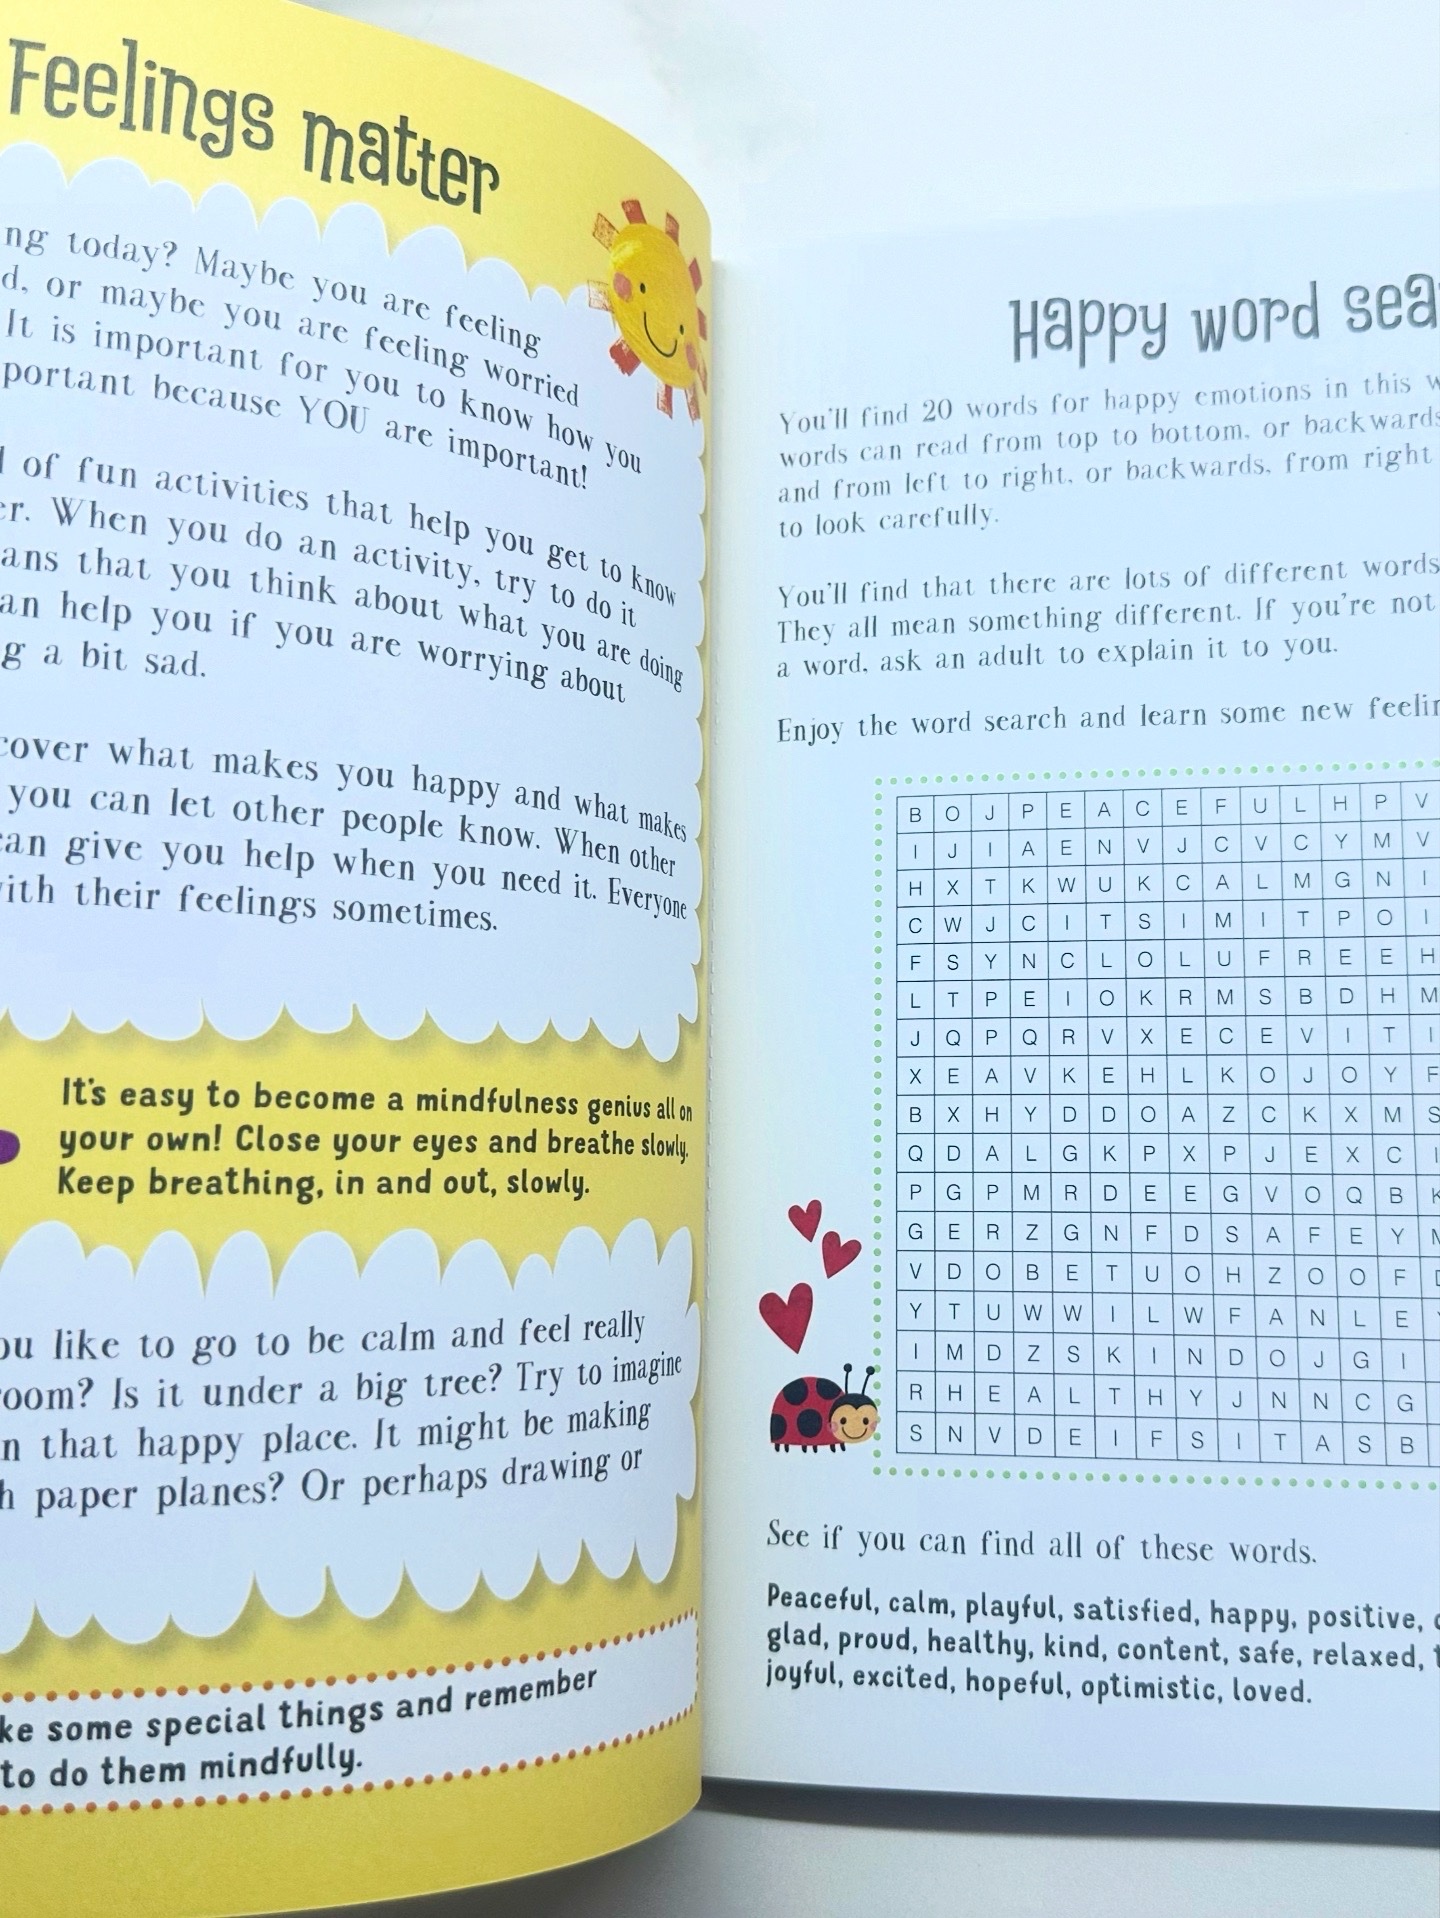 Feelings matter
ng today? Maybe you are feeling
d, or maybe you are feeling worried
It is important for you to know how you
portant because YOU are important!
l of fun activities that help you get to know
er. When you do an activity, try to do it
ans that you think about what you are doing
an help you if you are worrying about
g a bit sad.
cover what makes you happy and what makes
you can let other people know. When other
can give you help when you need it. Everyone
ith their feelings sometimes.
It's easy to become a mindfulness genius all on
your own! Close your eyes and breathe slowly.
Keep breathing, in and out, slowly.
ou like to go to be calm and feel really
oom? Is it under a big tree? Try to imagine
n that happy place. It might be making
h paper planes? Or perhaps drawing or
ke some special things and remember
to do them mindfully.
Happy word sea
You'll find 20 words for happy emotions in this w
words can read from top to bottom, or backwards
and from left to right, or backwards, from right
to look carefully.
You'll find that there are lots of different words
They all mean something different. If you're not
a word, ask an adult to explain it to you.
Enjoy the word search and learn some new feelin
B O J P E A C E F U L H P V
I J I A E N V J C V C Y M V
H X T K W U K C A L M G N I
C W J C I T S I M I T P O I
F S Y N C L O L U F R E E H
L T P E I O K R M S B D H M
J Q P Q R V X E C E V I T I
X E A V K E H L K O J O Y F
B X H Y D D O A Z C K X M S
Q D A L G K P X P J E X C I
P G P M R D E E G V O Q B K
G E R Z G N F D S A F E Y
V D O B E T U O H Z O O F
Y T U W W I L W F A N L E
I M D Z S K I N D O J G I
R H E A L T H Y J N N C G
S N V D E I F S I T A S B
See if you can find all of these words.
Peaceful, calm, playful, satisfied, happy, positive,
glad, proud, healthy, kind, content, safe, relaxed,
joyful, excited, hopeful, optimistic, loved.